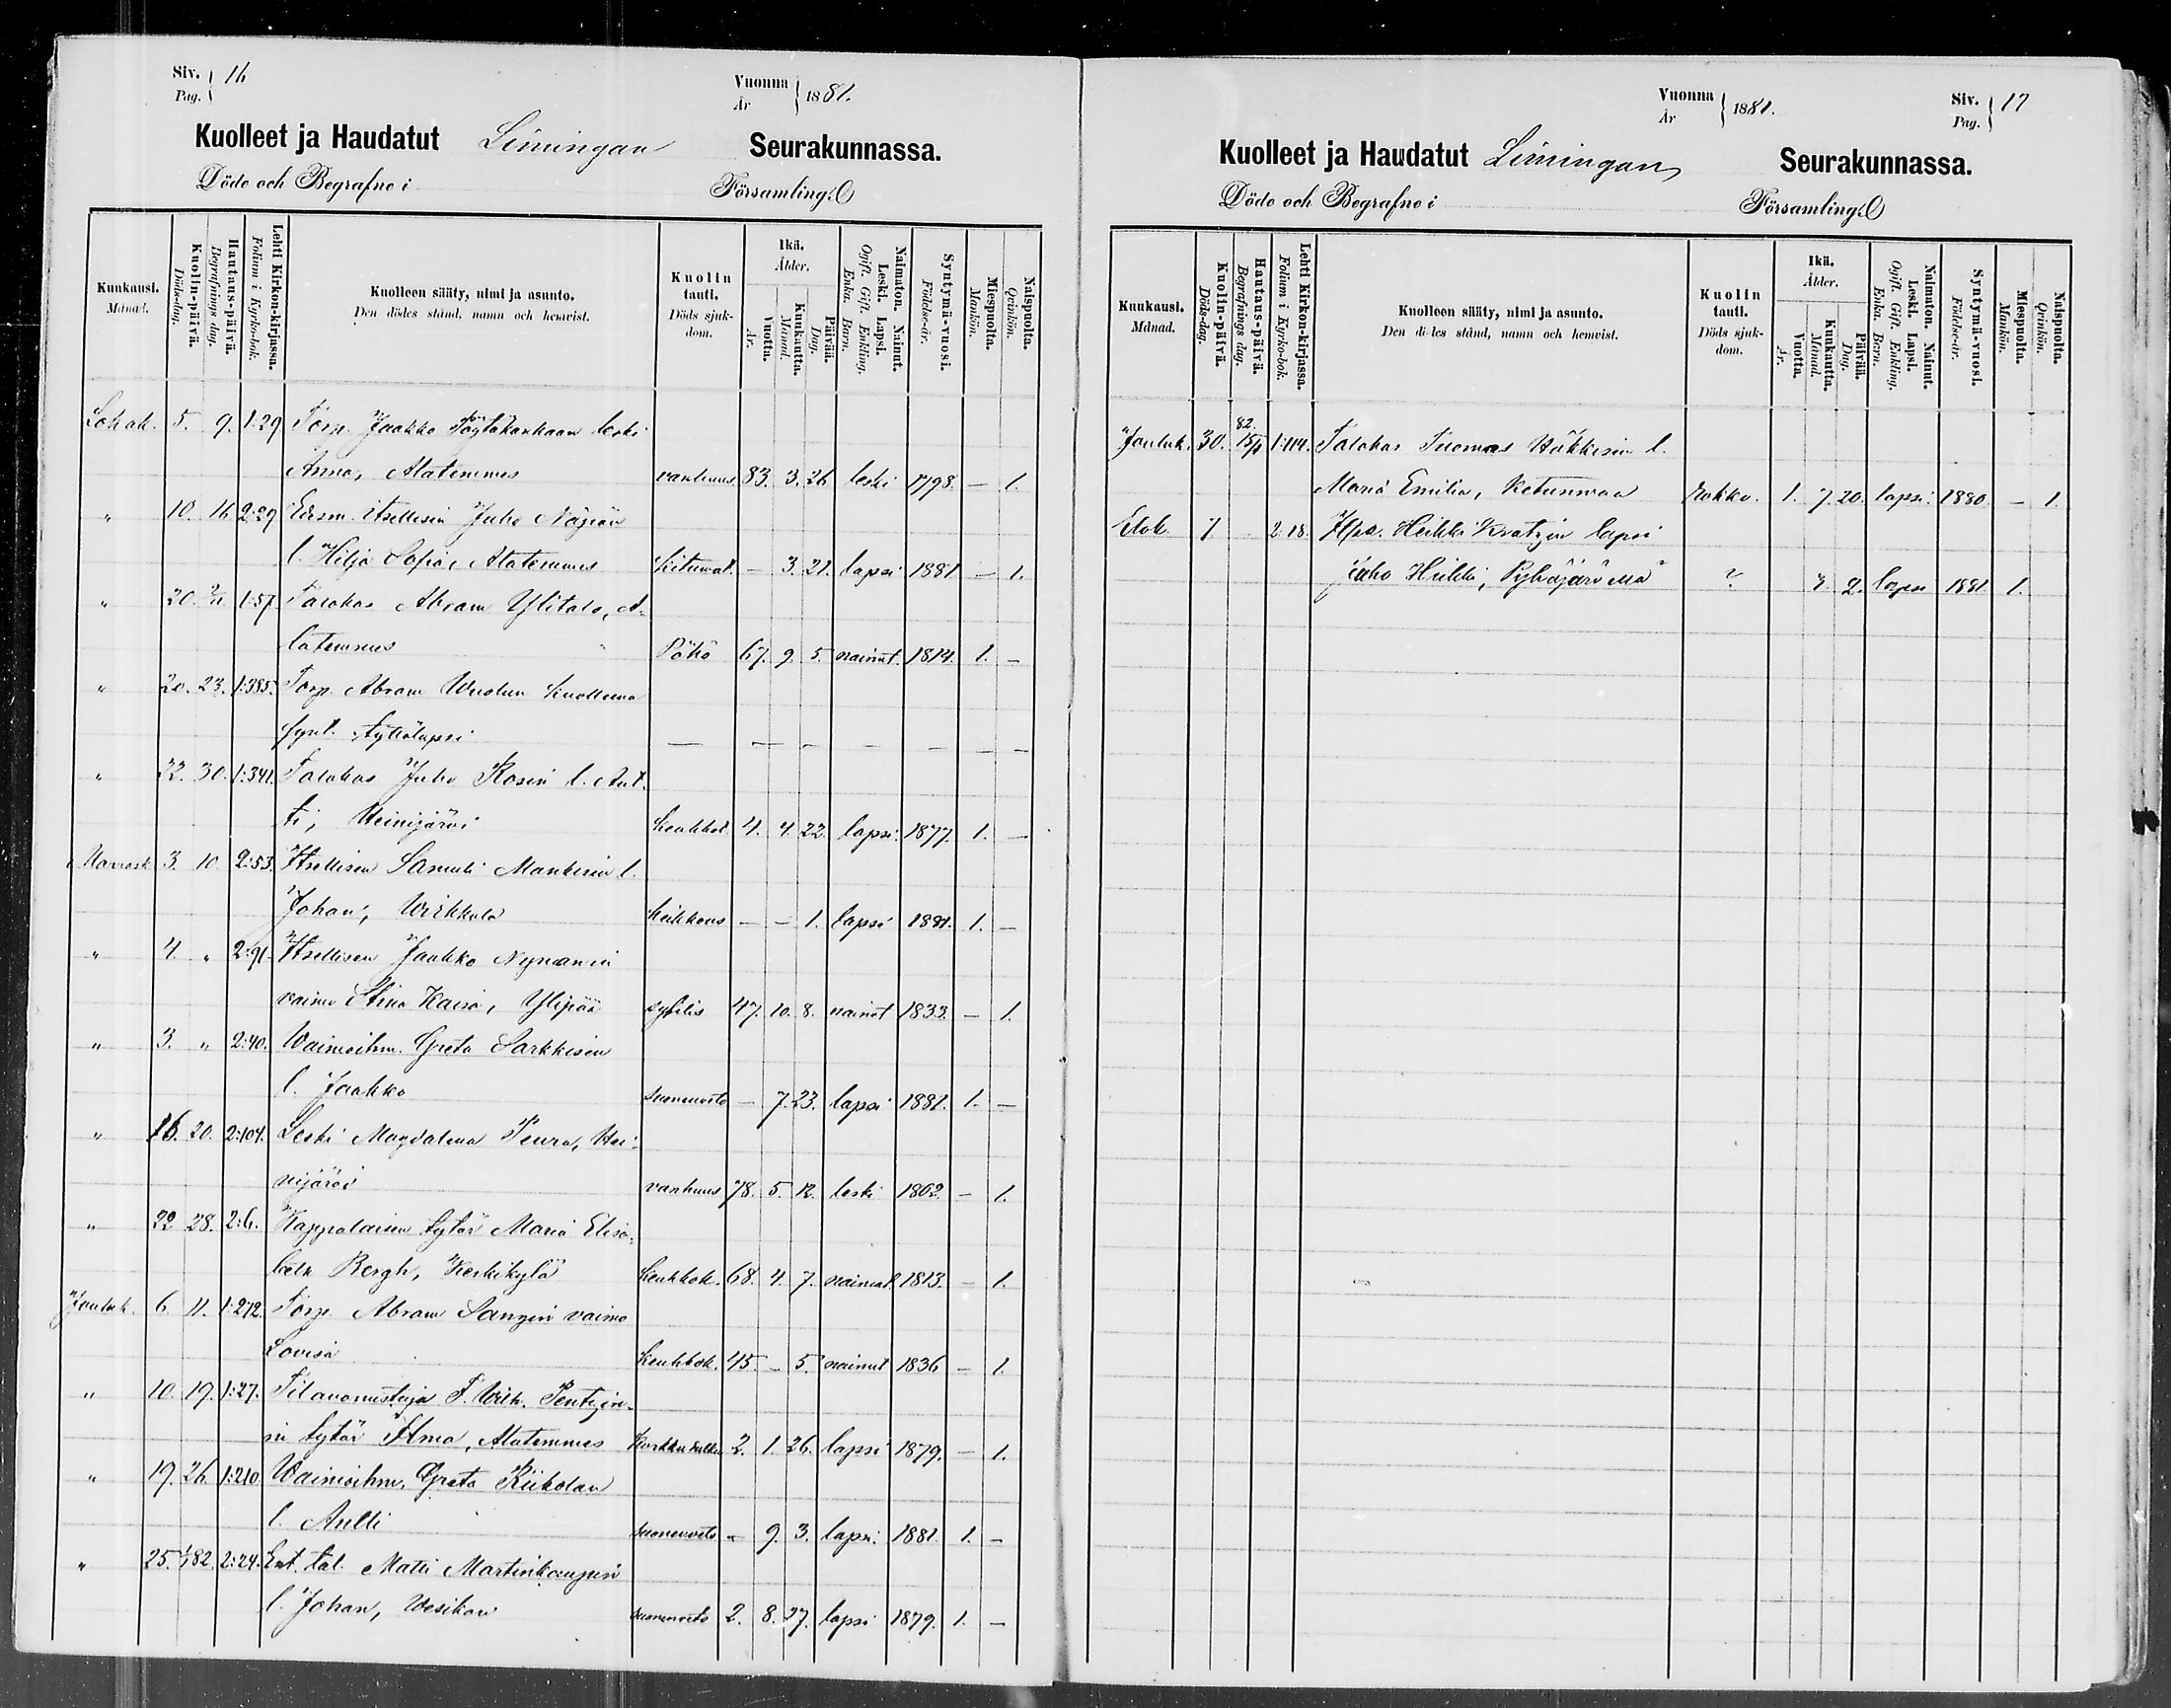 Siv. Pag. 16
Vuonna År 1881.
Kuolleet ja Haudatut Limingan Seurakunnassa.
Döde och Begrafne i Församling.
Kuukausi. Månad.
Kuolin-päivä. Döds-dag.
Hautaus-päivä. Begrafnings dag.
Lehti Kirkon-kirjassa. Folium i Kyrko-bok.
Kuolleen sääty, nimi ja asunto. Den dödes stånd, namn och hemvist.
Kuolin tauti. Döds sjuk-dom.
Ikä. Ålder.
Vuotta. År.
Kuukautta. Månad.
Päivää. Dag.
Naimaton. Nainut. Leski. Lapsi. Ogift. Gift. Enkling. Enka. Barn.
Syntymä-vuosi. Födelse-år.
Miespuolta. Mankön.
Naispuolta. Qvinkön.
Lokak. 5. 9. 1:29 Torp. Jaakko Pöytäkankaan leski
Anna, Alatemmes vanhuus 83. 3. 26 leski 1798. — 1.
" 10. 16 2:29 Itsellisen Juho
l. Hilja Sofia, Alatemmes kitumat. — 3. 21. lapsi 1881 — 1.
" 20. 1:57 Talokas Abram Ylitalo, A-
latemmes Pöhö 67. 9. 5. nainut. 1814. 1. —
" 20. 23. 1:385. Torp. Abram kuollena
synt. tyttölapsi — — — — — — —
" 22. 30. 1:341. Talokas Juho Kosin l. Ant-
ti, Heinijärvi keuhkot. 4. 4. 22. lapsi. 1877. 1. —
Marrask. 3. 10. 2:53. Itsellisen Samuli Mankisen l.
Johan, Wirkkula heikkous — — 1. lapsi 1881. 1. —
" 4. " 2:91. Itsellisen Jaakko Nymanin
vaimo Stina Kaisa, Ylipää syfilis 47. 10. 8. nainut 1833. — 1.
" 3. " 2:40. Waimoihm. Greta Sarkkisen
l. Jaakko suonenveto — 7. 23. lapsi 1881. 1. —
" 16. 20. 2:104. Leski Magdalena Peura, Hei-
nijärvi vanhuus 78. 5. 12. leski 1802. — 1.
" 22 28. 2:6. Kappalaisen tytär Maria Elisa-
beth Bergh, Keskikylä keuhkok. 68. 4. 7. naimat. 1813. — 1.
Jouluk. 6. 11. 1:272. Torp. Abram Sangin vaimo
Lovisa keuhkok. 45. — 5. nainut 1836 — 1.
" 10. 19. 1:27. Tilanomistaja F. Wilh. Pentzin-
in tytär Ilma, Alatemmes 2. 1. 26. lapsi 1879. — 1.
" 19. 26. 1:210. Waimoihm. Greta Riikolan
l. Antti suonenveto — 9. 3. lapsi. 1881. 1. —
" 25. 1/1 82. 2:24. Ent. tal. Matti Martinkaupin
l. Johan, Wesikari suonenveto 2. 8. 27. lapsi 1879. 1. —
Vuonna År 1881.
Siv. Pag. 17
Kuolleet ja Haudatut Limingan Seurakunnassa.
Döde och Begrafne i Församling.
Kuukausi. Månad.
Kuolin-päivä. Döds-dag.
Hautaus-päivä. Begrafnings dag.
Lehti Kirkon-kirjassa. Folium i Kyrko-bok.
Kuolleen sääty, nimi ja asunto. Den dödes stånd, namn och hemvist.
Kuolin tauti. Döds sjuk-dom.
Ikä. Ålder.
Vuotta. År.
Kuukautta. Månad.
Päivää. Dag.
Naimaton. Nainut. Leski. Lapsi. Ogift. Gift. Enkling. Enka. Barn.
Syntymä-vuosi. Födelse-år.
Miespuolta. Mankön.
Naispuolta. Qvinkön.
82.
Jouluk. 30. 15/1 1:114. Talokas Tuomas Häkkisen l.
Maria Emilia, Ketunmaa rokko. 1. 7. 20. lapsi. 1880. — 1.
Elok. 7 2:18. Heikki Kratzin lapsi
Juho Heikki, ? 2. lapsi 1881 1.